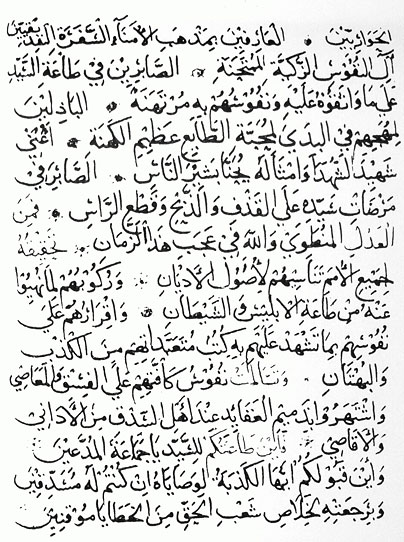 الحوازيين * العارفين بمذهب الأمناء السفرة القديقيين
آل النفوس الزكية الممتحنة * الصابرين في طاعة السيد
على ما واثقوه عليه ونفوسهم به مرتهنة * الباذلين
لمهجهم في البدي لمحبة الطالع عظيم الكهنة * أعني
شهيد الشهدا وامثاله يحنا بشير الناس * الصابر في
مرضات سيده على القذف والذبح وقطع الراس * فمن
العدل المنطوي والله في عجب هذا الزمان * تحقيقه
جميع الأمم تناسيهم لأصول الأديان * وركوبهم لما نهيوا
عنه من طاعة الابليس والشيطان * واقرارهم على
نفوسهم بما تشهد عليهم به كتب متعبداتهم من الكذب
والبهتان * وتسالمت نفوس كافتهم على الفسق والمعاصي
واشتهروا بذميم العقايد عند أهل التذف من الأداني
والأقاصي * فاين طاعتكم للسيد يا جماعة المدعين
واين قبولكم ايها الكذبة لوصاياه ان كنتم له مصدقين
وبرجعته لخلاص شعب الحق من الخطايا موقنين